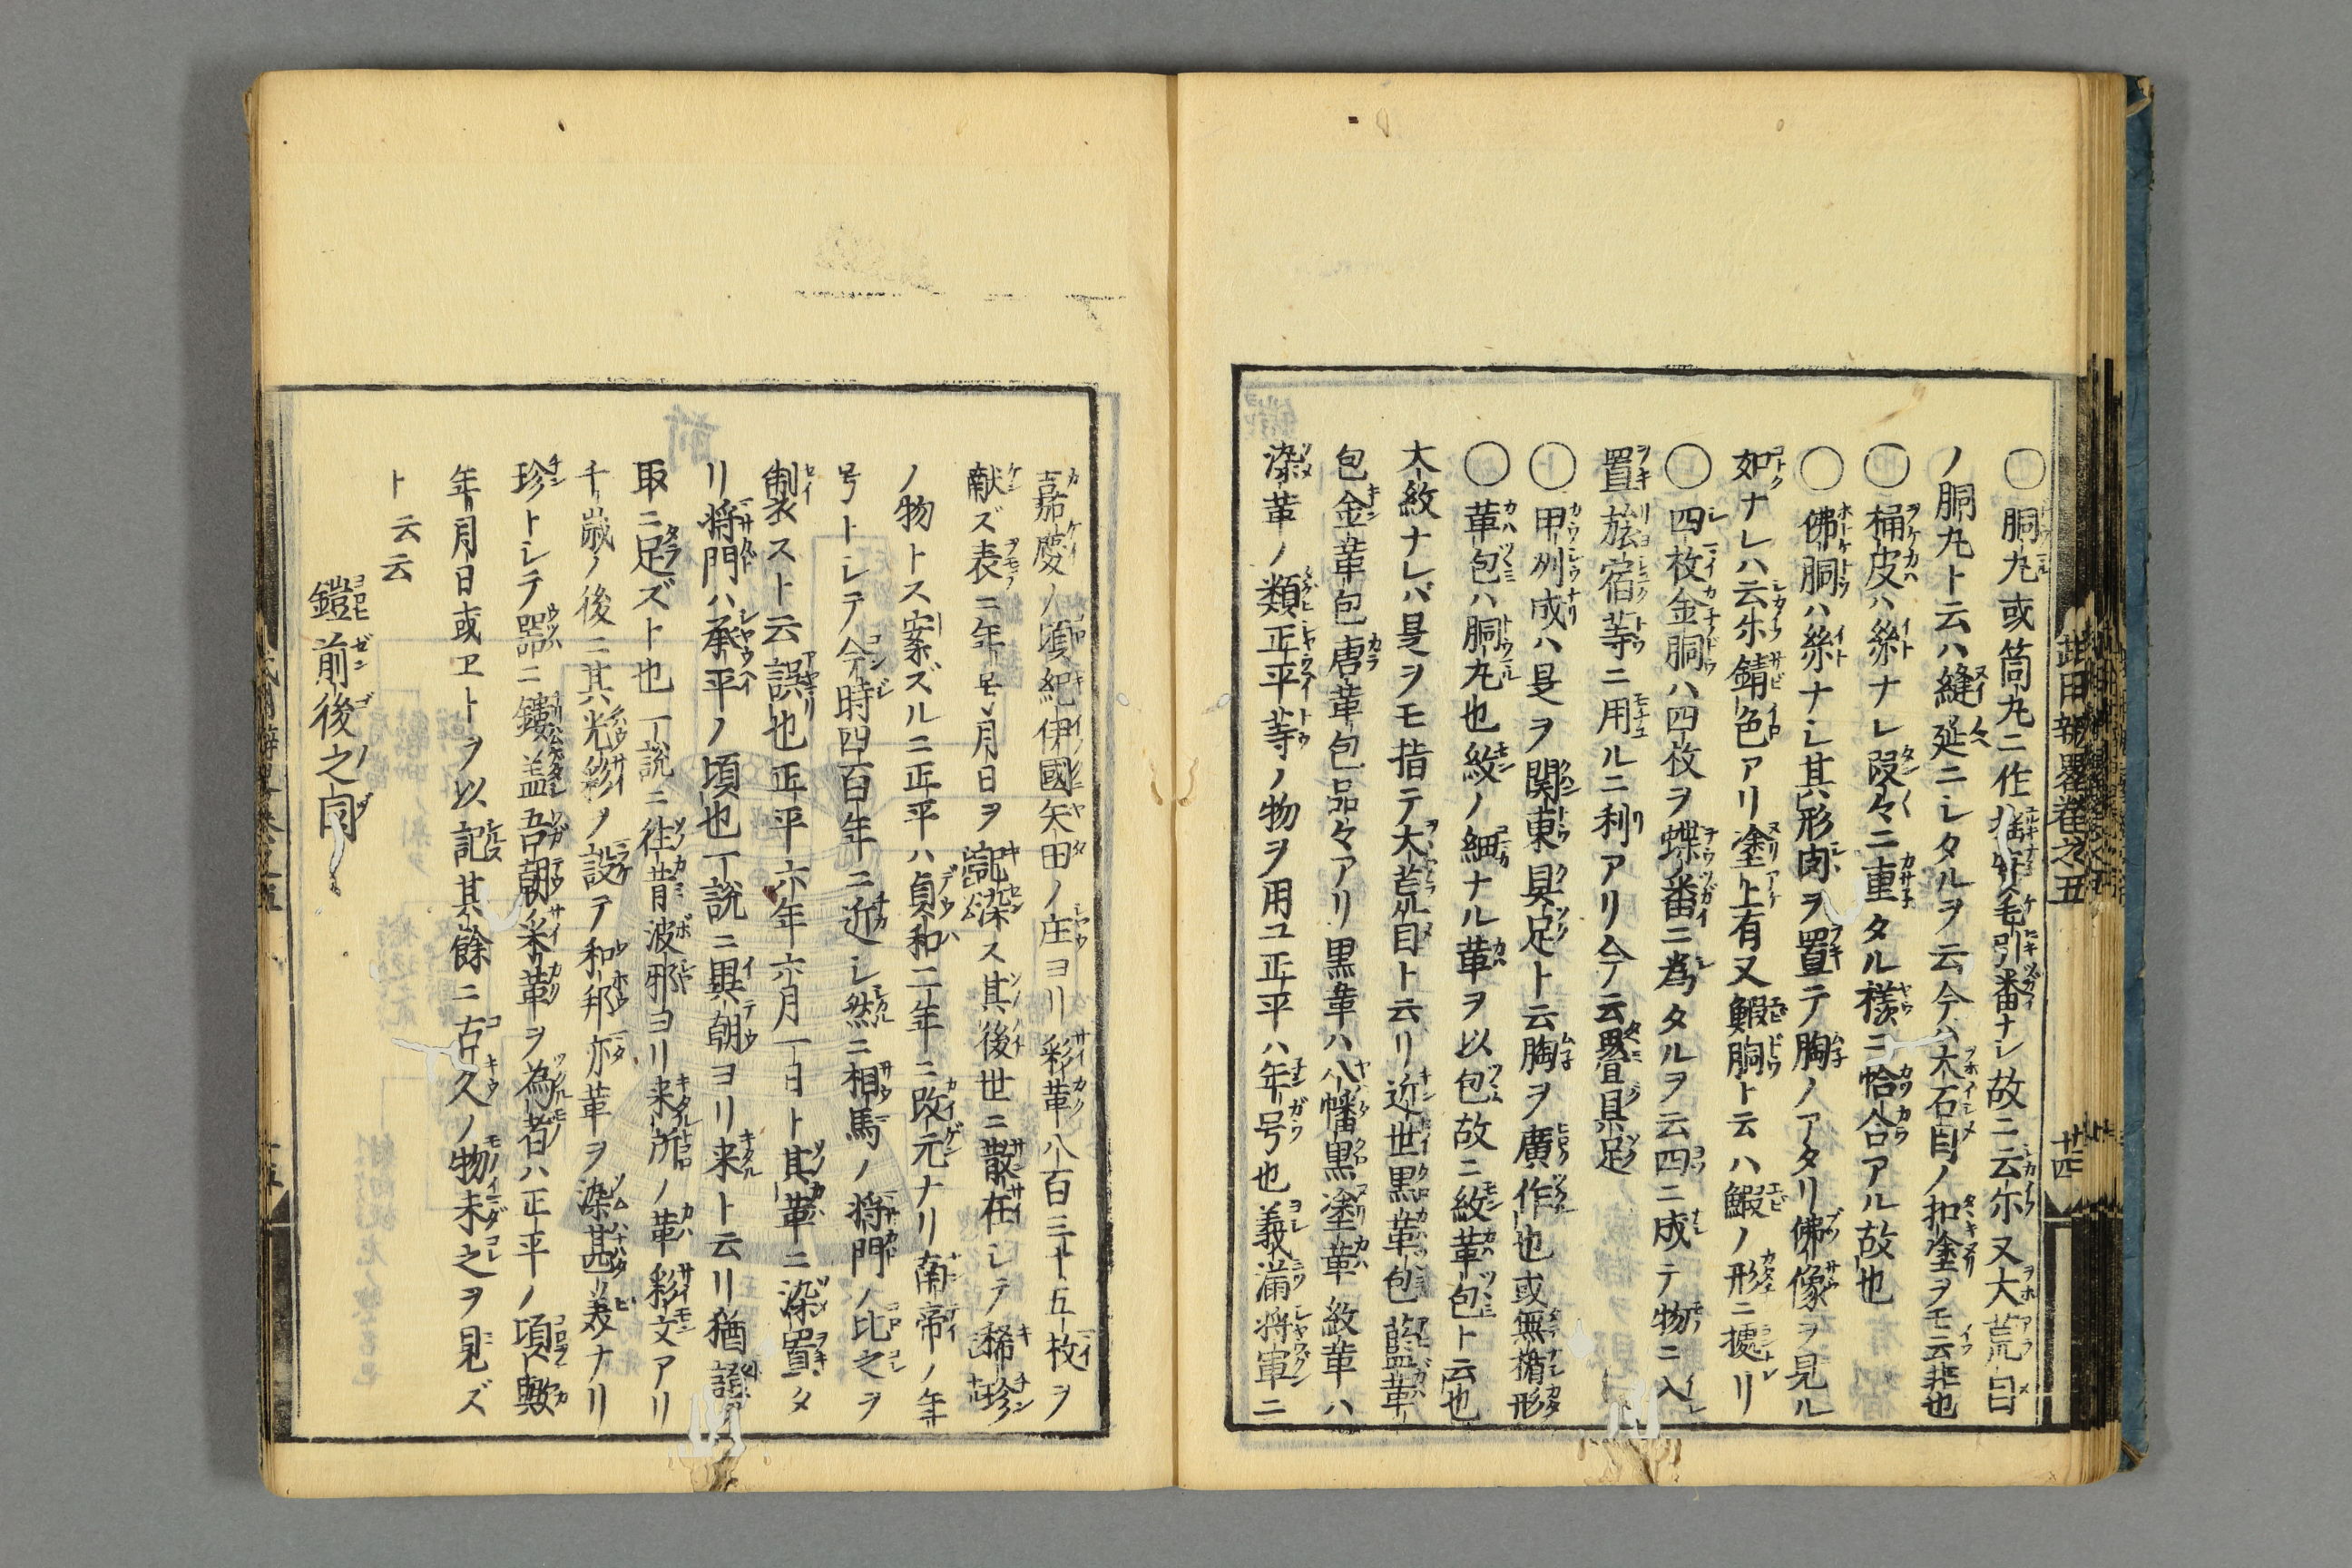 〇胴丸或筒丸ニ作揺絲毛引番ナシ故ニ云尓又大荒目
ノ胴丸ト云ハ縫延ニシタルヲ云今ハ大石目ノ扣塗ヲモ云非也
〇桶皮ハ絲ナレ段々ニ重タル様ニ恰合アル故也
〇佛胴ハ絲ナシ其形肉ヲ置テ胸ノアタリ佛像ヲ見ル
如ナレハ云尓錆色アリ塗上有又鰕胴ト云ハ鰕ノ形ニ摅リ
〇四枚金胴ハ四枚ヲ蝶番ニ為タルヲ云四ニ成テ物ニ入
置旅宿等ニ用ルニ利アリ今云畳具足
〇甲刕成ハ是ヲ関東具足ト云胸ヲ廣作也或無楯形
〇革包ハ胴丸也紋ノ細ナル革ヲ以包故ニ紋革包ト云也
大紋ナレバ是ヲモ指テ大荒目ト云リ近世黒革包藍革
包金革包唐革包品々アリ黒韋ハ八幡黒塗革紋韋ハ
染革ノ類正平等ノ物ヲ用ユ正平ハ年号也義満将軍ニ
武用辨畧巻之五
廿四
嘉慶ノ頃紀伊國矢田ノ庄ヨリ彩革八百三十五枚ヲ
献ズ表ニ年号月日ヲ記染ス其後世ニ散在シテ稀珍
ノ物トス案ズルニ正平ハ貞和二年ニ改元ナリ南帝ノ年
号トシテ今時四百年ニ近シ然ニ相馬ノ将門ノ比之ヲ
制裂スト云誤也正平六年六月一日ト其革ニ染置タ
リ将門ハ承平ノ頃也一説ニ異朝ヨリ来ト云リ猶證ヲ
取ニ足ズト也一説ニ往昔波邪ヨリ来所ノ革彩文アリ
千歳ノ後ニ其光彩ヲ設テ和邦亦革ヲ染甚美ナリ
珍トシテ器ニ鏤盖吾朝采革ヲ為者ハ正平ノ頃歟
年月日或ヱトヲ以記其餘ニ古久ノ物未之ヲ見ズ
ト云云
鎧前後之圖